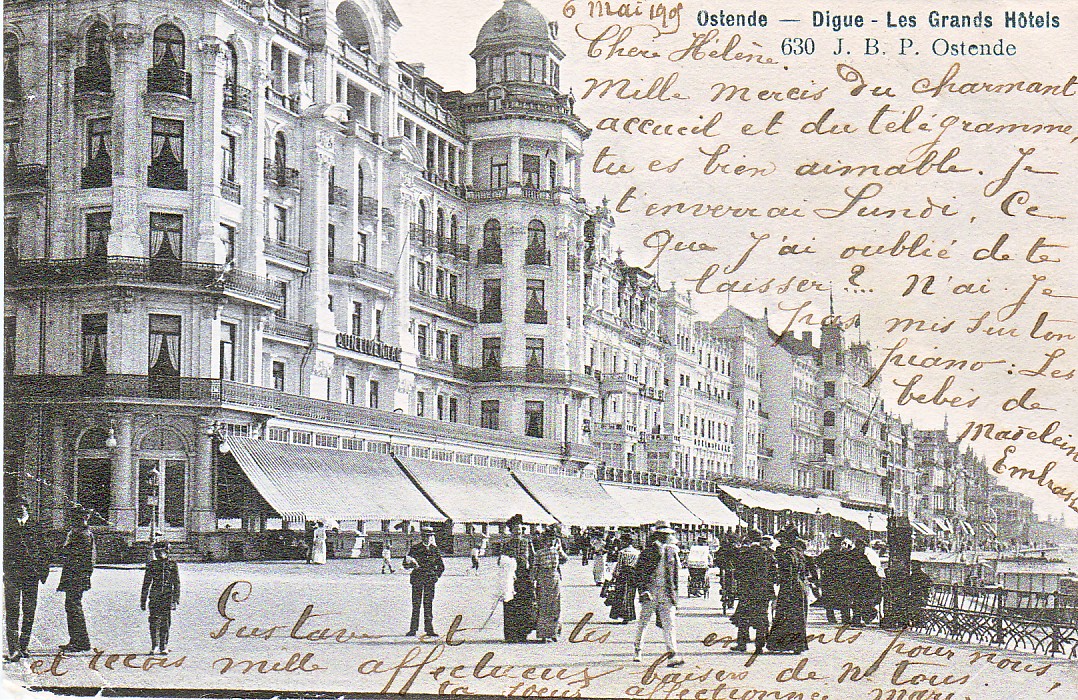 6 Mai 190
Ostende — Digue - Les Grands Hôtels
630 J. B. P. Ostende
Chère Hélène.
Mille mercis du charmant
accueil et du télégramme,
tu es bien aimable. Je
t'enverrai Lundi, Ce
que j'ai oublié de te
laisser ?... N'ai Je
pas mis sur ton
piano : Les
bébés de
Madelein
Embrass
CONTINENTAL
Gustave et tes enfants pour nous,
et reçois mille affectueux baisers de n. tous
ta sœur affectionnée